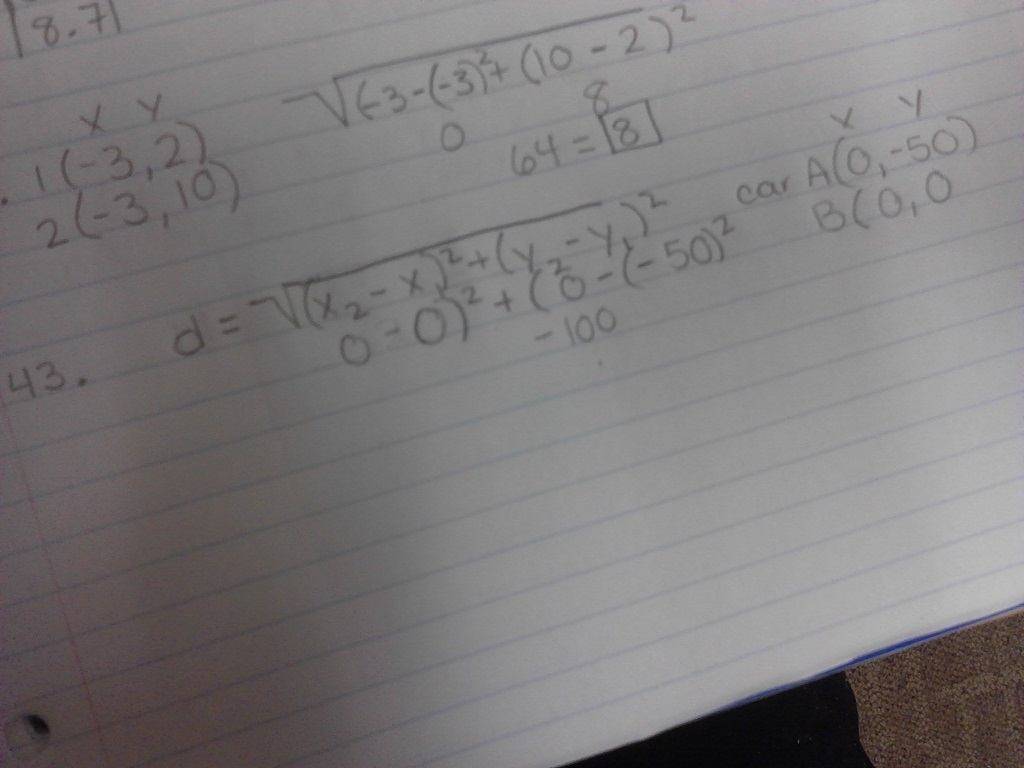 8.7
X Y
1(-3, 2)
2(-3, 10)
√(-3-(-3)²+(10-2)²
0 8
64 = 8
X Y
car A(0,-50)
B(0,0
43. d = √(x₂-x)²+(y₂-y₁)²
0-0)²+(0-(-50)²
0 -100